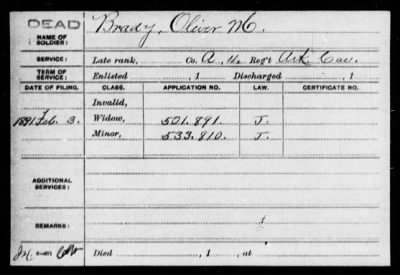 DEAD
NAME OF SOLDIER: Brady, Oliver M.
SERVICE: Late rank, Co. A, 4. Reg't Ark Cav.
TERM OF SERVICE: Enlisted , 1 Discharged , 1
DATE OF FILING. CLASS. APPLICATION NO. LAW. CERTIFICATE NO.
Invalid,
1891 Feb. 3. Widow, 501.891. J.
Minor, 533.810. J.
ADDITIONAL SERVICES:
REMARKS:
Died , 1 , at